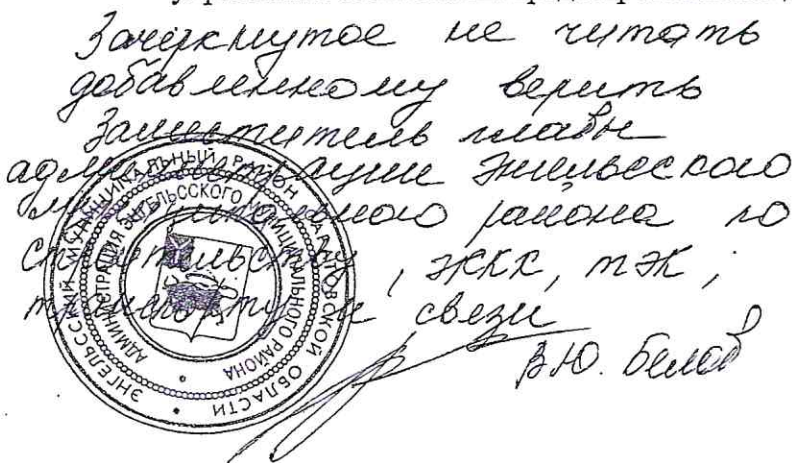 Зачеркнутое не читать
добавленному верить
Заместитель главы
администрации Энгельсского
муниципального района по
строительству, ЖКК, ТЭК,
транспорту и связи
В.Ю. Белов
ЭНГЕЛЬССКИЙ МУНИЦИПАЛЬНЫЙ РАЙОН САРАТОВСКОЙ ОБЛАСТИ
АДМИНИСТРАЦИЯ ЭНГЕЛЬССКОГО МУНИЦИПАЛЬНОГО РАЙОНА